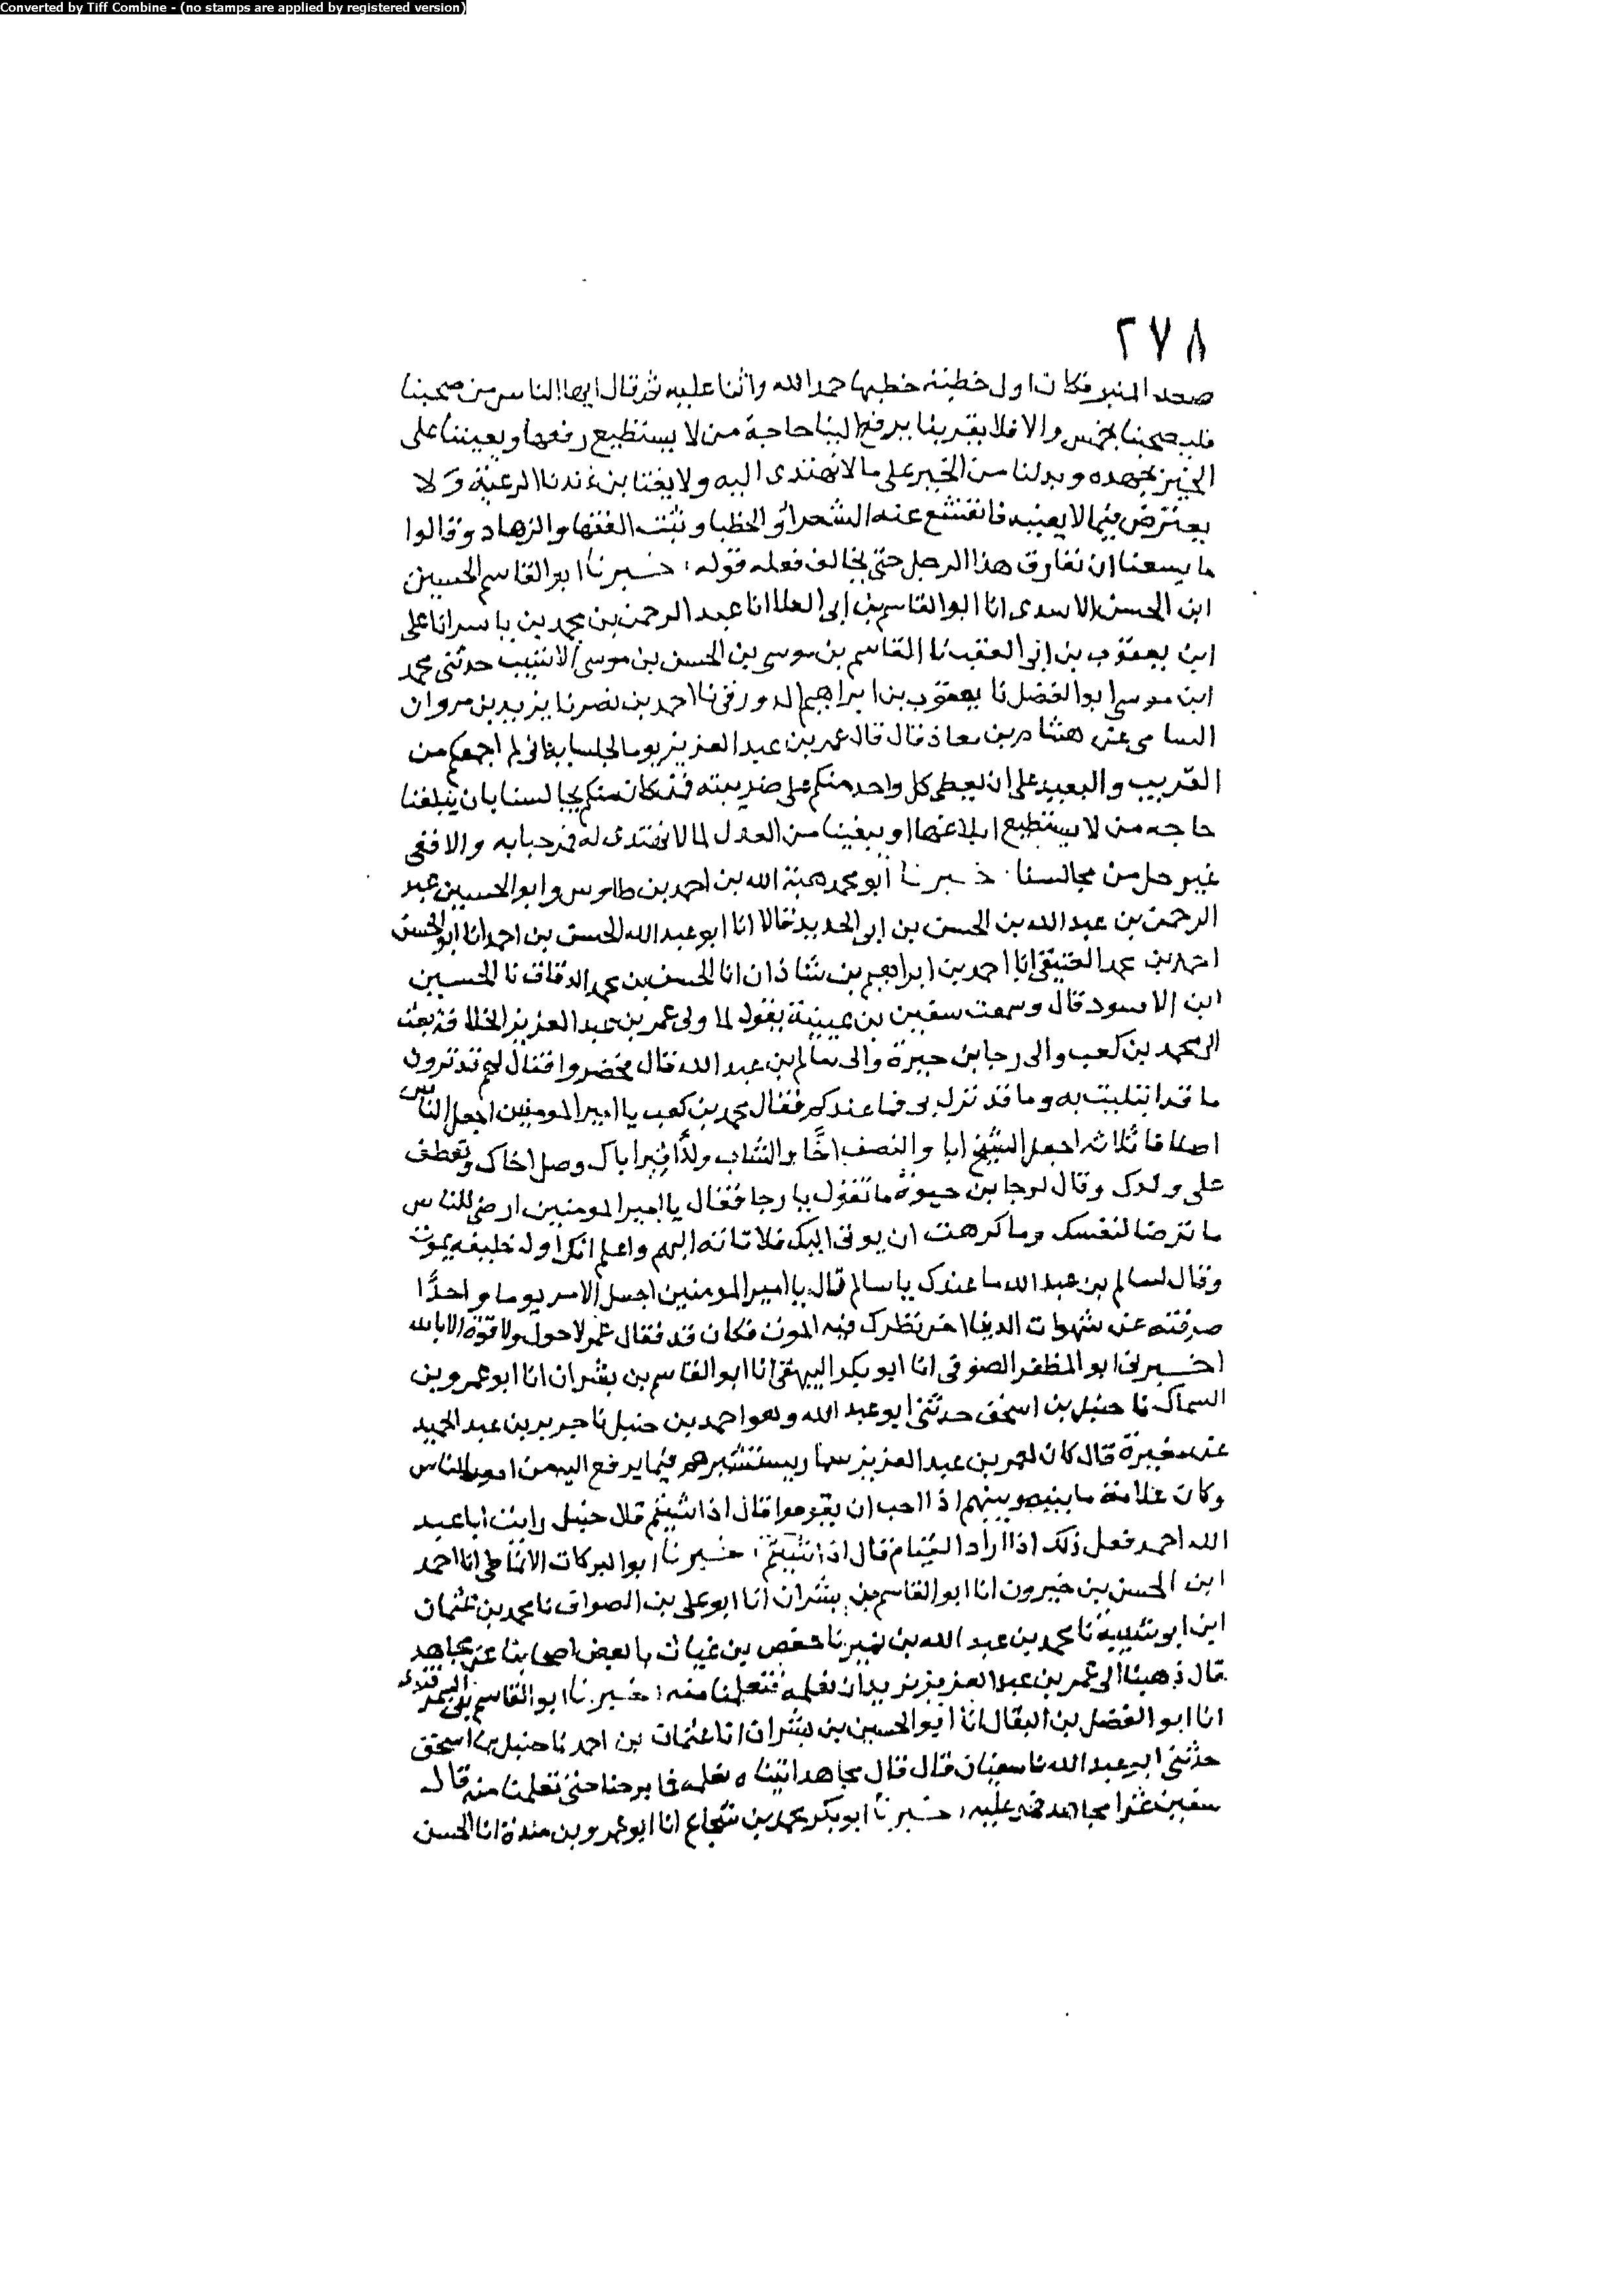 Converted by Tiff Combine - (no stamps are applied by registered version)
٢٧٨
صعد المنبر فكان اول خطبة خطبها حمد الله واثنا عليه ثم قال ايها الناس من صحبنا
فليصحبنا بخمس والا فلا يقربنا يرفع الينا حاجة من لا يستطيع رفعها ويعيننا على
الخير بجهده ويدلنا من الخير على ما لا نهتدى اليه ولا يغتابن عندنا الرعية ولا
يعترض فيما لا يعنيه فانقشع عنه الشعرا والخطبا وثبت الفقها والزهاد وقالوا
ما يسعنا ان نفارق هذا الرجل حتى يخالف فعله قوله خبرنا ابو القاسم الحسين
ابن الحسن الاسدى انا ابو القاسم بن ابى العلا انا عبد الرحمن بن محمد بن ياسر انا على
ابن يعقوب بن ابى العقب نا القاسم بن موسى بن الحسن بن موسى الاشيب حدثنى محمد
ابن موسى ابو الفضل نا يعقوب بن ابراهيم الدورقى نا احمد بن نصر نا يزيد بن مروان
السامى عن هشام بن معاذ قال قال عمر بن عبد العزيز يوما لجلسايه انى لم اجمعكم من
القريب والبعيد على ان يعطى كل واحد منكم على ضريبته فمن كان منكم يجالسنا بان يبلغنا
حاجه من لا يستطيع ابلاغها او يبغينا من العدل لما لا نهتدى له فمرحبا به والا ففى
غير حل من مجالسنا خبرنا ابو محمد هبة الله بن احمد بن طاوس وابو الحسين عبد
الرحمن بن عبد الله بن الحسن بن ابى الحديد قالا انا ابو عبد الله الحسن بن احمد انا ابو الحسن
احمد بن محمد العتيقى انا احمد بن ابراهيم بن شاذان انا الحسن بن محمد الدقاق نا الحسين
ابن الاسود قال وسمعت سفين بن عيينة يقول لما ولى عمر بن عبد العزيز الخلافة بعث
الى محمد بن كعب والى رجا بن حيوة والى سالم بن عبد الله قال فحضروا فقال لهم قد ترون
ما قد ابتليت به وما قد نزل بى فما عندكم فقال محمد بن كعب يا امير المومنين اجعل الناس
اصنافا ثلاثه اجعل الشيخ ابا والنصف اخًا والشاب ولدًا فبر اباك وصل اخاك وتعطف
على ولدك وقال لرجا بن حيوة ما تقول يا رجا فقال يا امير المومنين ارض للناس
ما ترضا لنفسك وما كرهت ان يوتى اليك فلا تاته اليهم واعلم انك اول خليفه يموت
وقال لسالم بن عبد الله ما عندك يا سالم قال يا امير المومنين اجعل الامر يوما واحدًا
صم فيه عن شهوات الدنيا اخر فطرك فيه الموت فكان قد فقال عمر لا حول ولا قوة الا بالله
اخبرنى ابو المظفر الصوفى انا ابو بكر البيهقى انا ابو القاسم بن بشران انا ابو عمرو بن
السماك نا حنبل بن اسحق حدثنى ابو عبد الله وهو احمد بن حنبل نا جرير بن عبد الحميد
عن مغيرة قال كان لعمر بن عبد العزيز سمار يستشيرهم فيما يرفع اليه من امور الناس
وكان علامة ما بينه وبينهم اذا احب ان يقوموا قال اذا شيتم قال حنبل رايت ابا عبد
الله احمد فعل ذلك اذا اراد القيام قال اذا شيتم خبرنا ابو البركات الانماطى انا احمد
ابن الحسن بن خيرون انا ابو القاسم بن بشران انا ابو على بن الصواف نا محمد بن عثمان
ابن ابى شيبة نا محمد بن عبد الله بن نمير نا حفص بن غياث نا بعض اصحابنا عن مجاهد
قال ذهبنا الى عمر بن عبد العزيز نريد ان نعلمه فتعلمنا منه خبرنا ابو القاسم بن السمرقندى
انا ابو الفضل بن البقال انا ابو الحسين بن بشران انا عثمان بن احمد نا حنبل بن اسحق
حدثنى ابو عبد الله نا سفيان قال قال مجاهد اتيناه نعلمه فما برحنا حتى تعلمنا منه قال
سفين عثر مجاهد عليه خبرنا ابو بكر محمد بن شجاع انا ابو عمرو بن مندة انا الحسن